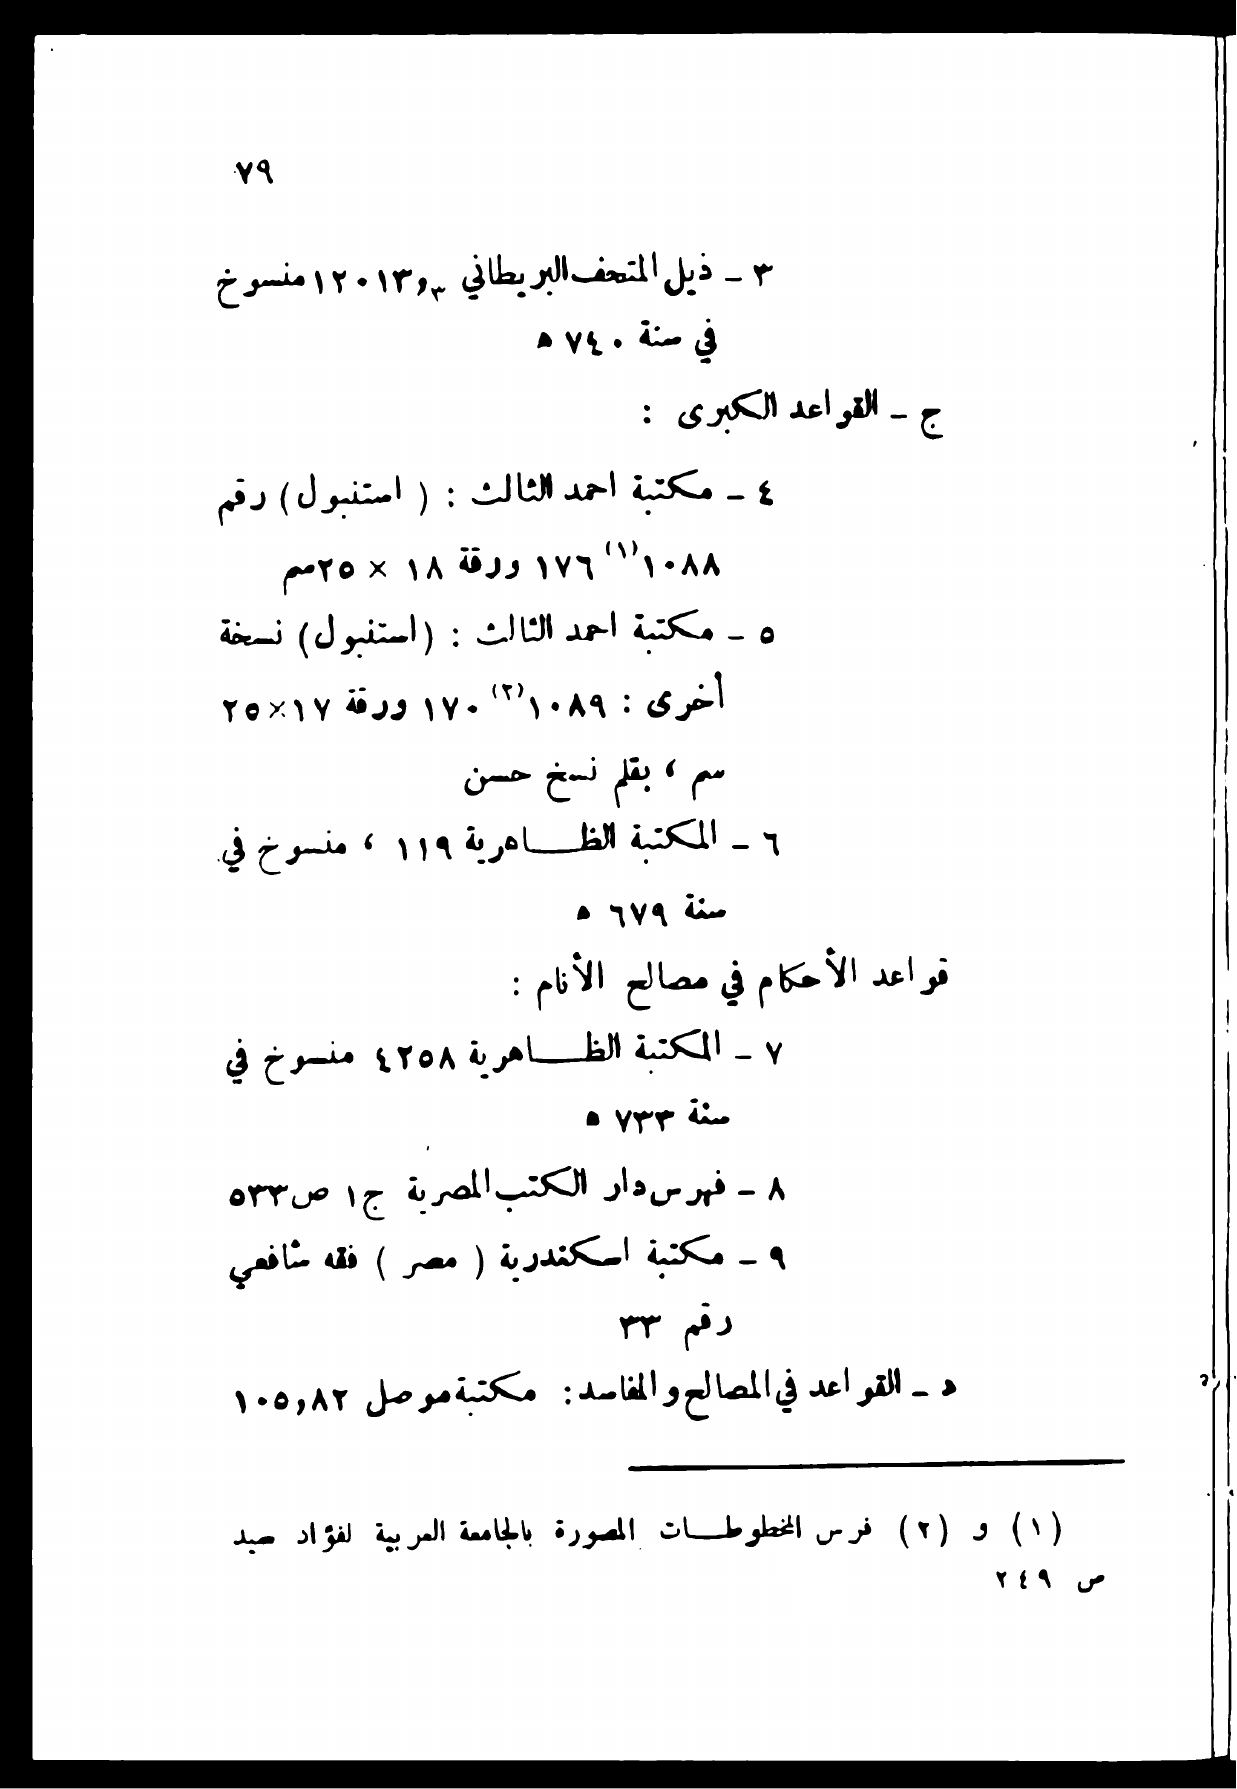 ٧٩
٣ ـ ذيل المتحف البريطاني ١٢٠١٣و٣ منسوخ
في سنة ٧٤٠ ه
ج ـ القواعد الكبرى :
٤ ـ مكتبة احمد الثالث : ( استنبول) رقم
١٠٨٨(١) ١٧٦ ورقة ١٨ × ٢٥سم
٥ ـ مكتبة احمد الثالث : (استنبول) نسخة
أخرى : ١٠٨٩(٢) ١٧٠ ورقة ١٧×٢٥
سم ، بقلم نسخ حسن
٦ ـ المكتبة الظـــاهرية ١١٩ ، منسوخ في
سنة ٦٧٩ ه
قواعد الأحكام في مصالح الأنام :
٧ ـ المكتبة الظـــاهرية ٤٢٥٨ منسوخ في
سنة ٧٣٣ ه
٨ ـ فهرس دار الكتب المصرية ج١ ص٥٣٣
٩ ـ مكتبة اسكندرية ( مصر ) فقه شافعي
رقم ٣٣
د ـ القواعد في المصالح والمفاسد: مكتبة موصل ١٠٥,٨٢
(١) و (٢) فرس المخطوطـــات المصورة بالجامعة العربية لفؤاد صيد
ص ٢٤٩